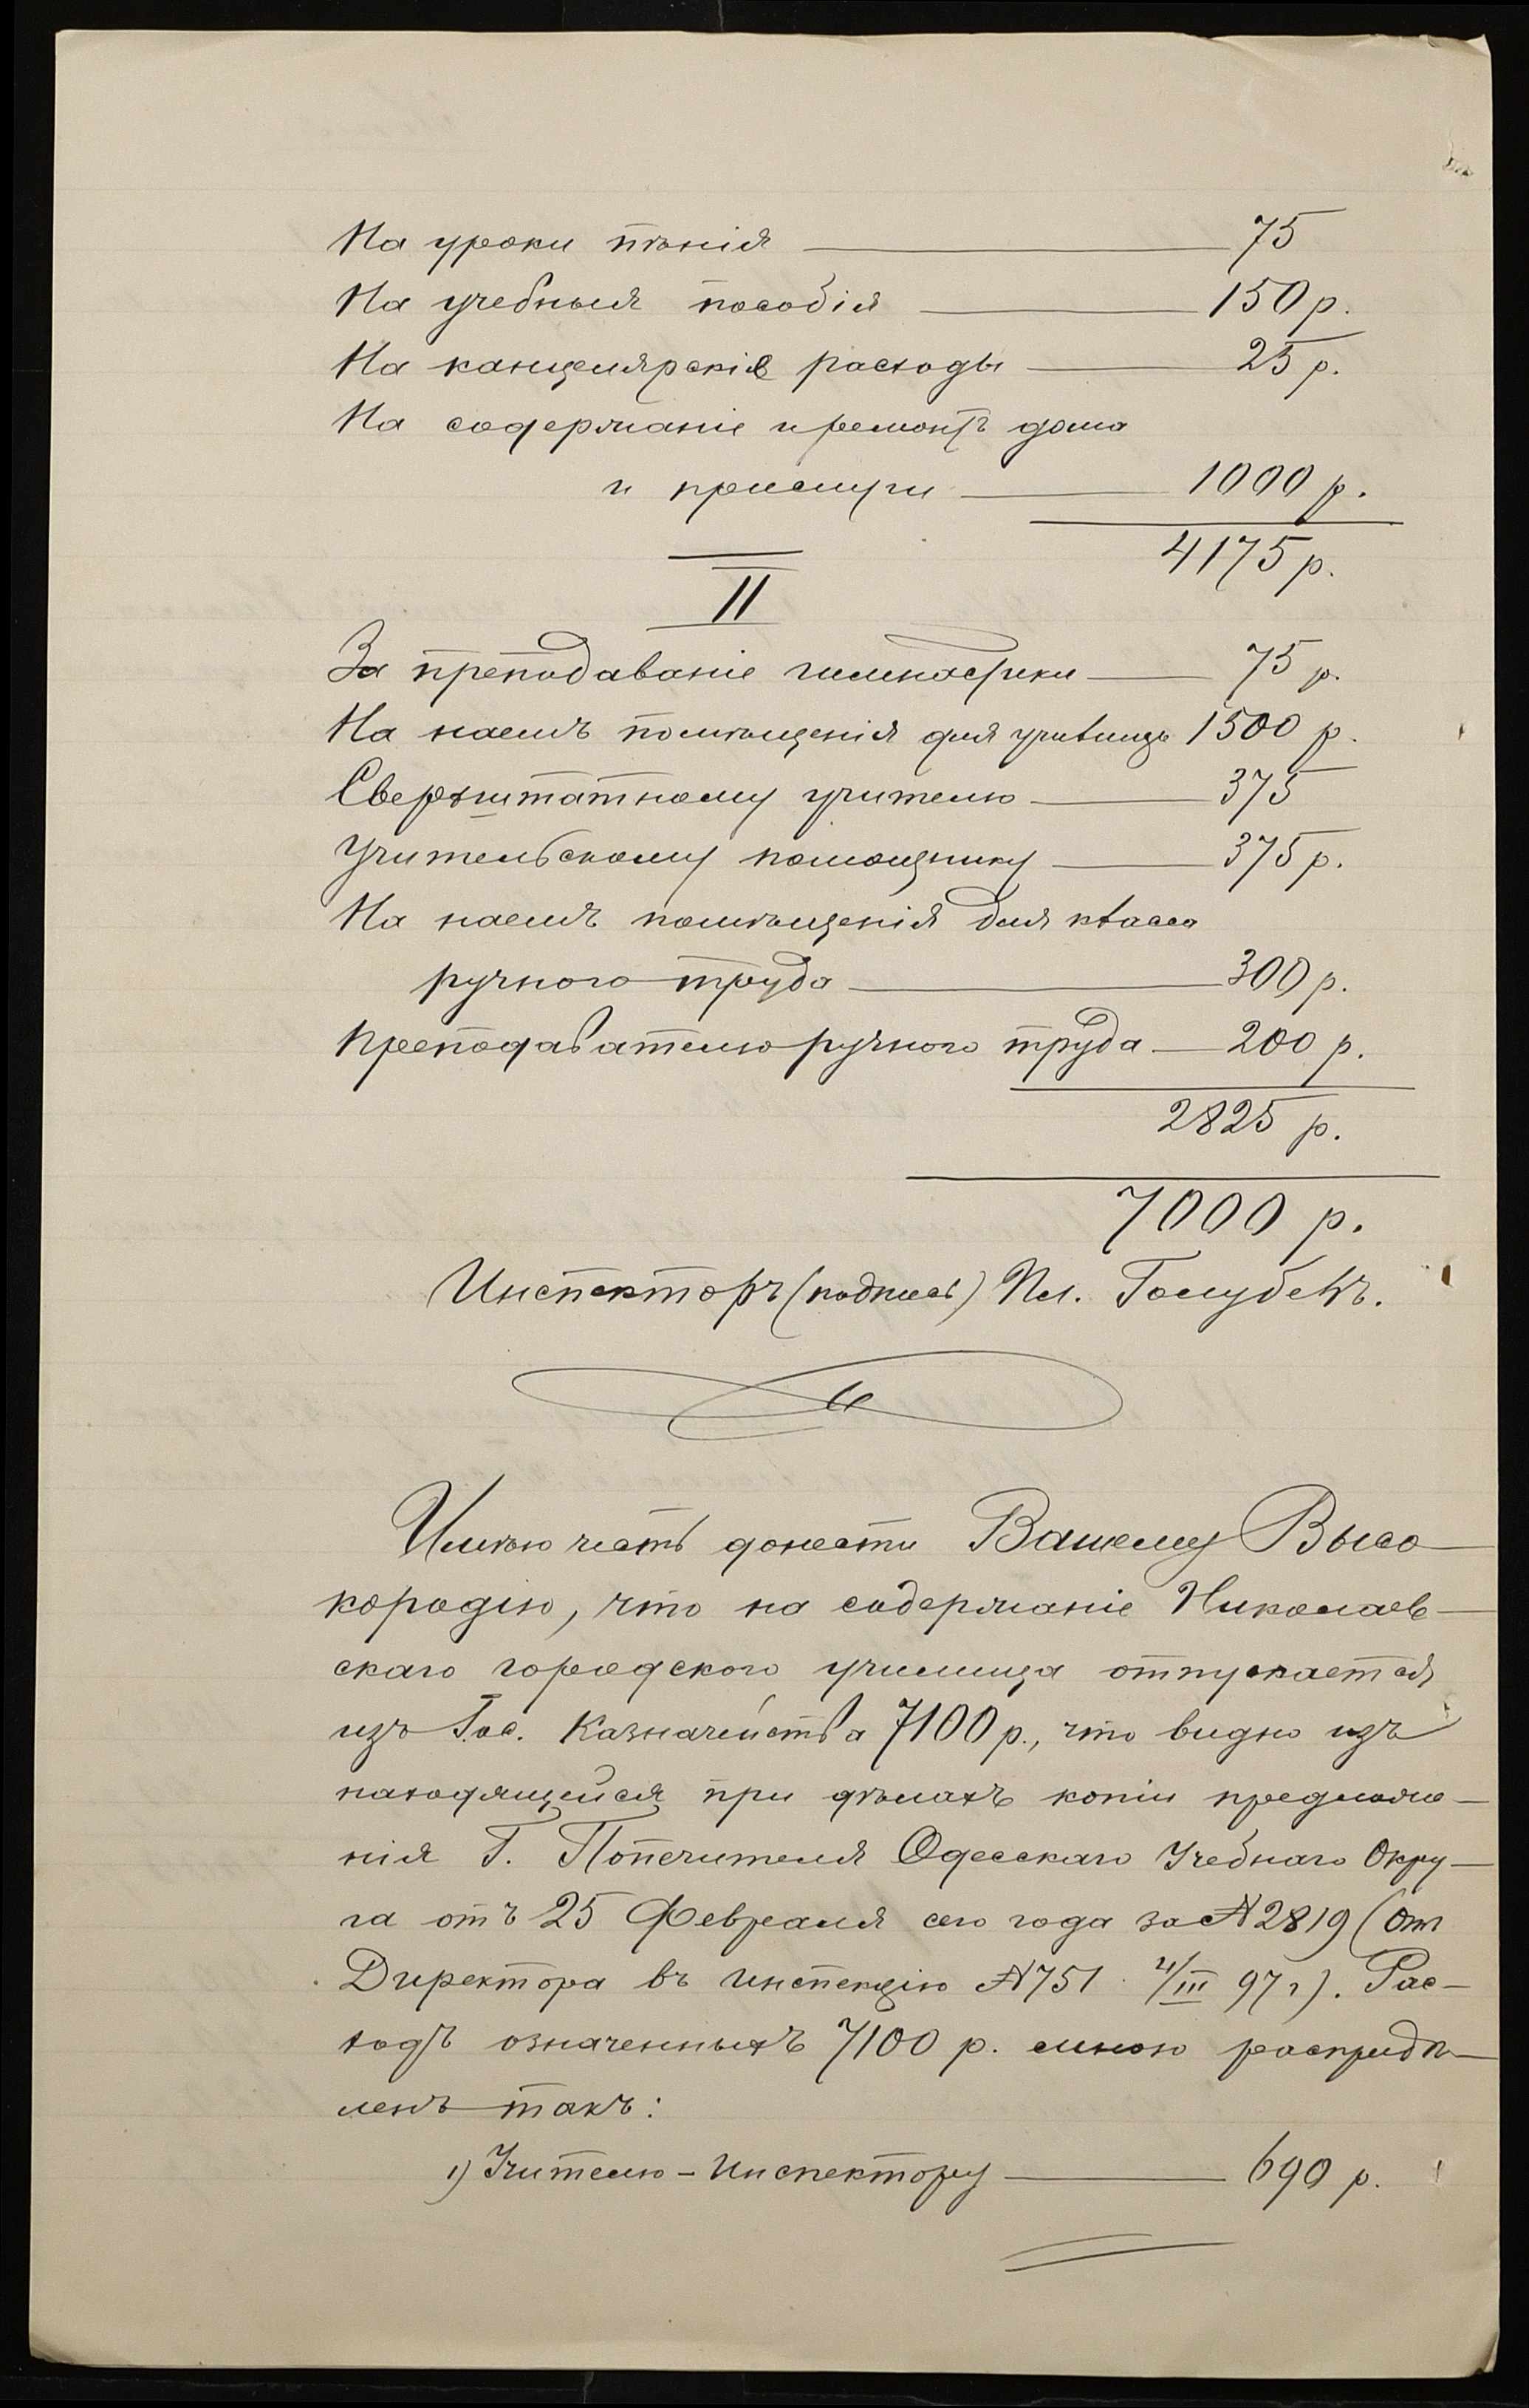 На уроки пѣнія — 75
На учебныя пособія — 150 р.
На канцелярскіе расходы — 25 р.
На содержаніе и ремонтъ дома
и прислуги — 1000 р.
4175 р.
II
За преподаваніе гимнастики — 75 р.
На наемъ помѣщенія для училища 1500 р.
Сверхштатному учителю — 375
Учительскому помощнику — 375 р.
На наемъ помѣщенія для класса
ручного труда — 300 р.
Преподавателю ручного труда — 200 р.
2825 р.
7000 р.
Инспекторъ (подписъ) Пл. Голубекъ.
Имѣю честь донести Вашему Высо-
кородію, что на содержаніе Николаев-
скаго городского училища отпускается
изъ Гос. Казначейства 7100 р., что видно изъ
находящейся при дѣлахъ копіи предложе-
нія Г. Попечителя Одесскаго Учебнаго Окру-
га отъ 25 Февраля сего года за № 2819 (От
Директора въ инспекцію № 751 4/III 97 г). Рас-
ходъ означенныхъ 7100 р. мною распредѣ-
ленъ такъ:
1) Учителю-Инспектору — 690 р.